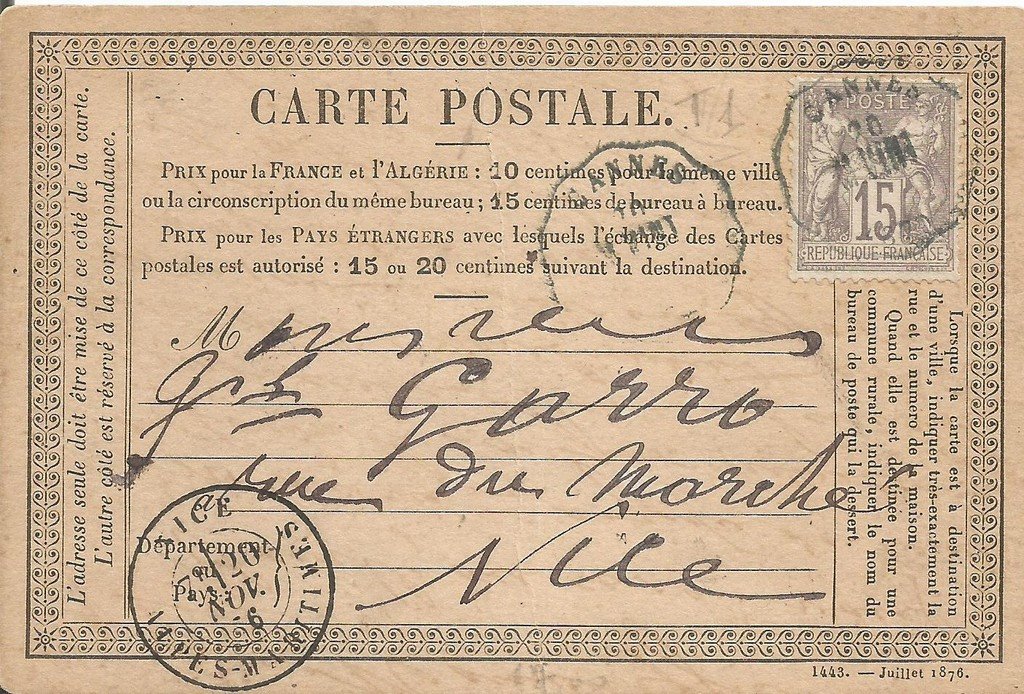 CARTE POSTALE.
T1
PRIX pour la FRANCE et l'ALGÉRIE : 10 centimes pour la même ville
ou la circonscription du même bureau ; 15 centimes de bureau à bureau.
PRIX pour les PAYS ÉTRANGERS avec lesquels l'échange des Cartes
postales est autorisé : 15 ou 20 centimes suivant la destination.
L'adresse seule doit être mise de ce côté de la carte.
L'autre côté est réservé à la correspondance.
CANNES
POSTE
15
RÉPUBLIQUE FRANÇAISE
CANNES
20
Monsieur
Garro
rue du Marché
Nice
Département
ou
Pays:
NICE
20
NOV.
ALPES-MARITIMES
Lorsque la carte est à destination
d'une ville, indiquer très-exactement la
rue et le numero de la maison.
Quand elle est destinée pour une
commune rurale, indiquer le nom du
bureau de poste qui la dessert.
1443. — Juillet 1876.